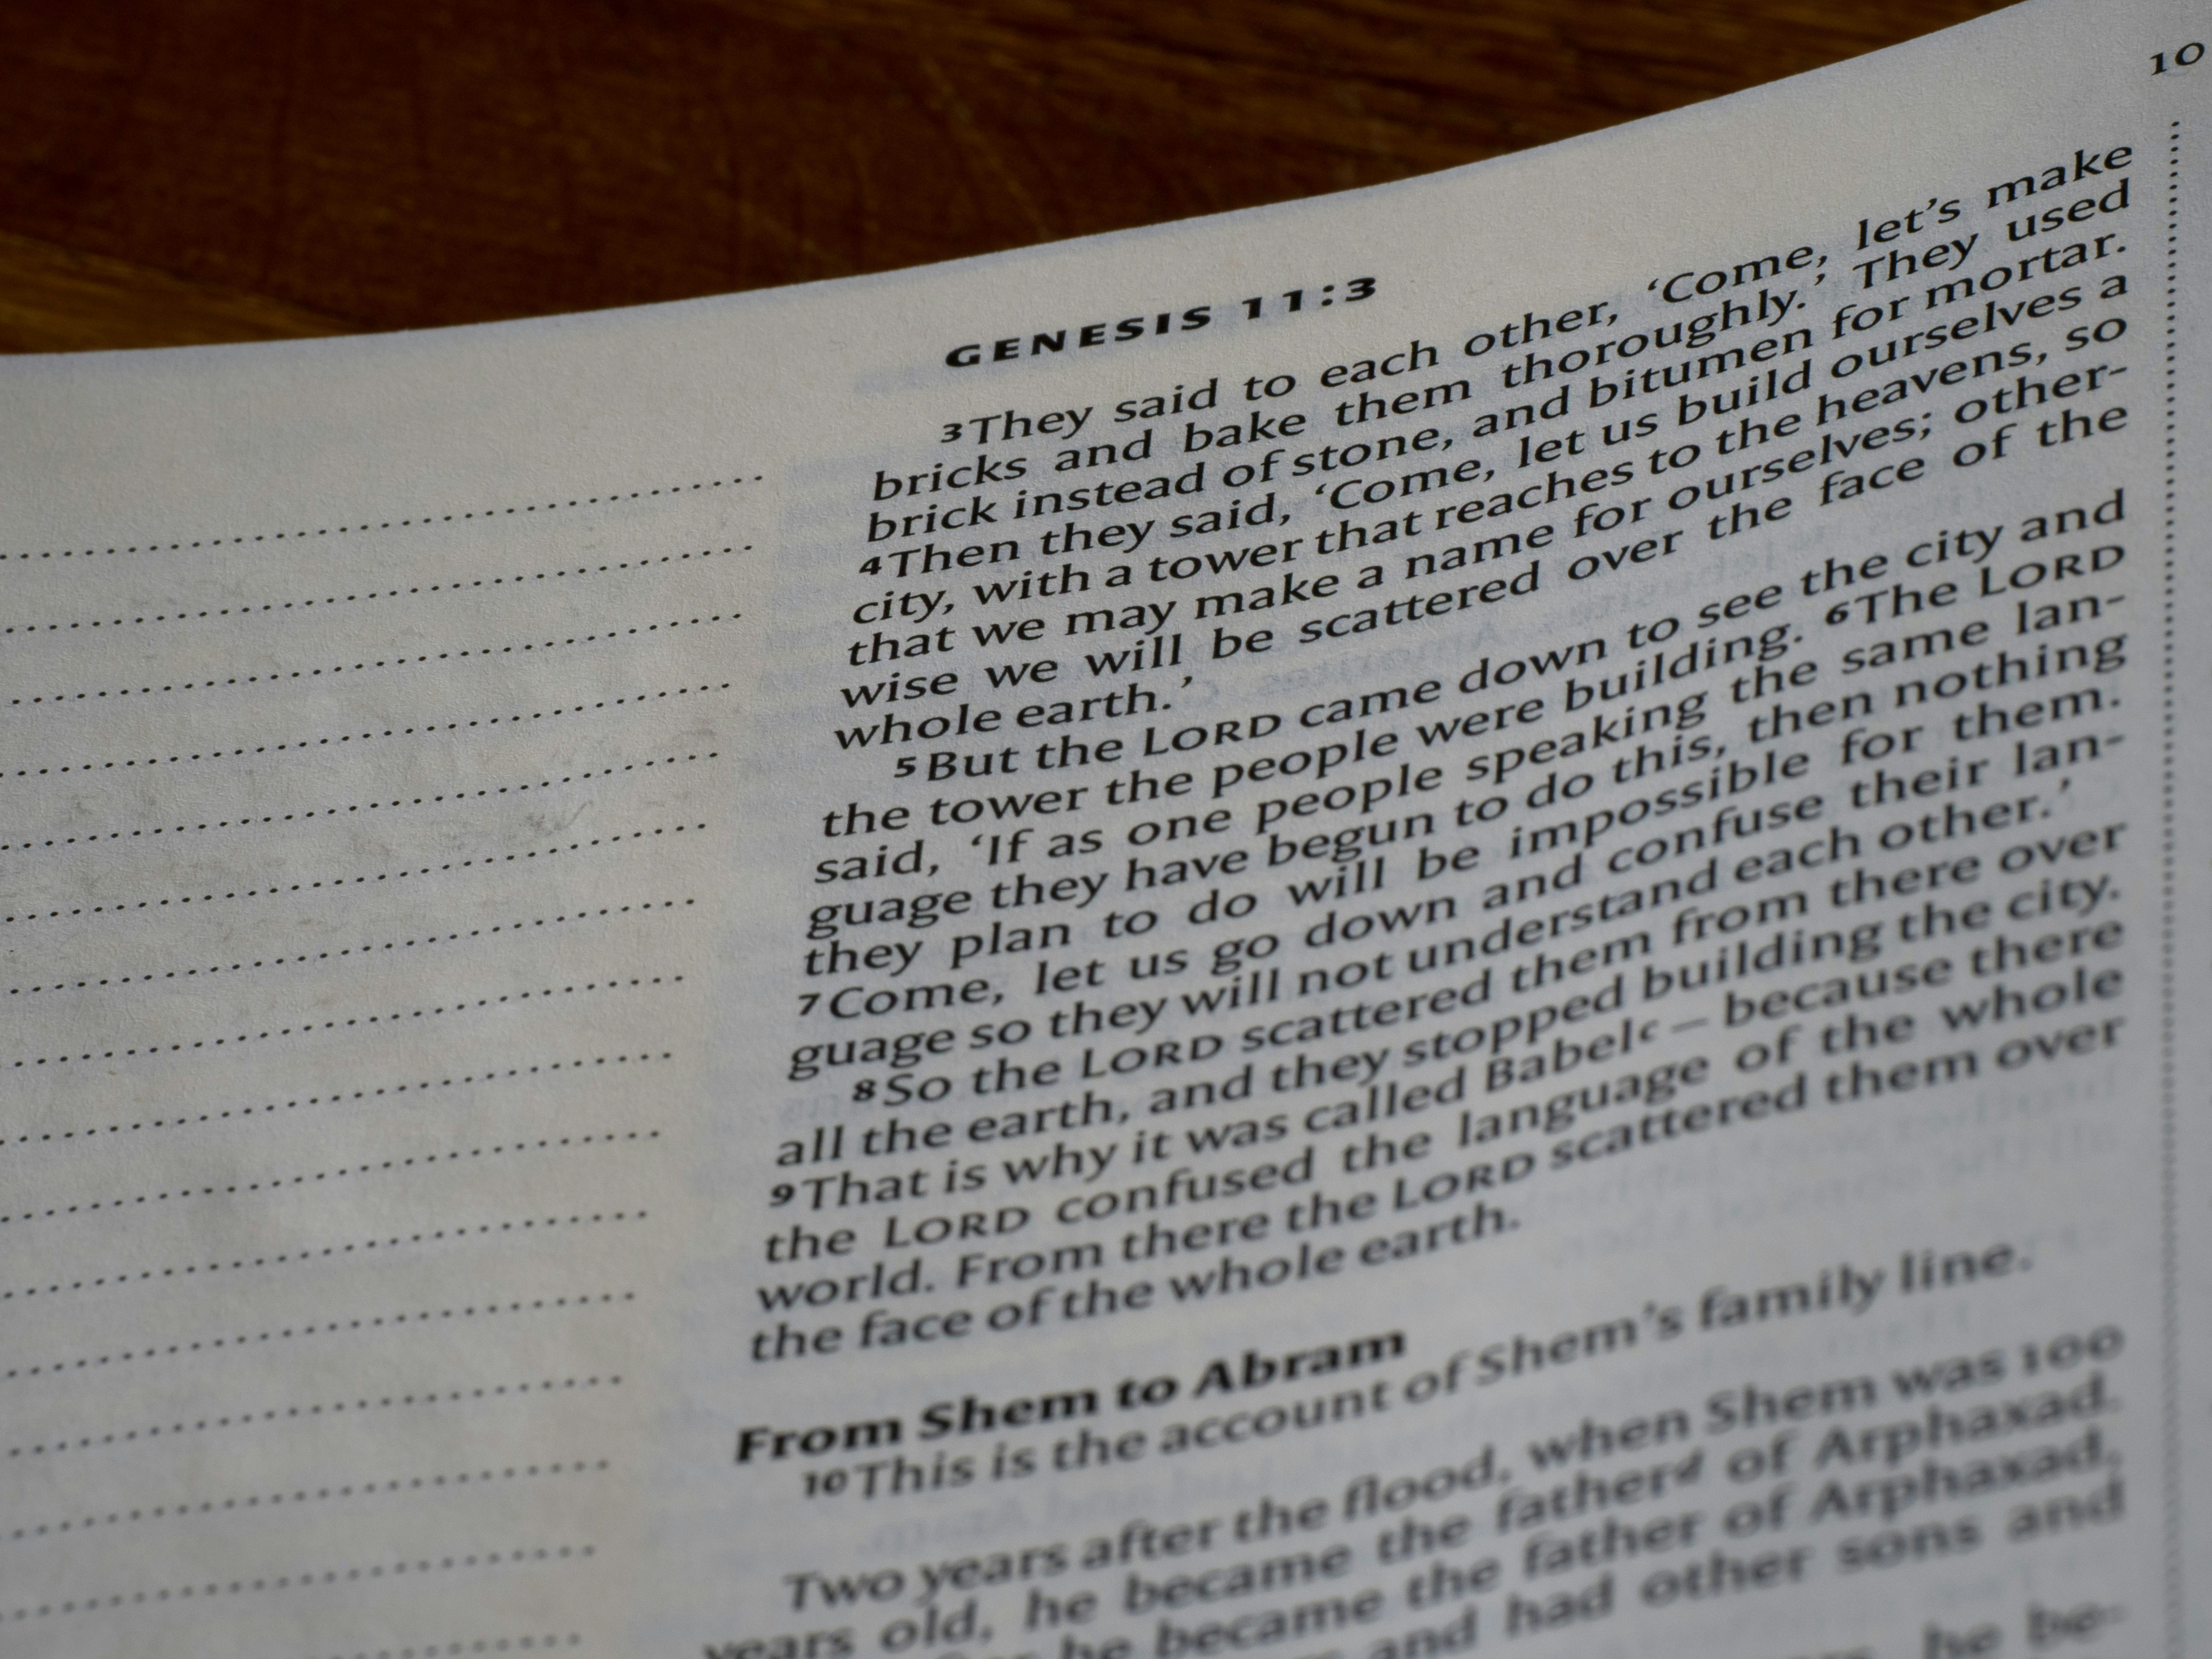 10
GENESIS 11:3
3They said to each other, ‘Come, let’s make
bricks and bake them thoroughly.’ They used
brick instead of stone, and bitumen for mortar.
4Then they said, ‘Come, let us build ourselves a
city, with a tower that reaches to the heavens, so
that we may make a name for ourselves; other-
wise we will be scattered over the face of the
whole earth.’
5But the LORD came down to see the city and
the tower the people were building. 6The LORD
said, ‘If as one people speaking the same lan-
guage they have begun to do this, then nothing
they plan to do will be impossible for them.
7Come, let us go down and confuse their lan-
guage so they will not understand each other.’
8So the LORD scattered them from there over
all the earth, and they stopped building the city.
9That is why it was called Babelc – because there
the LORD confused the language of the whole
world. From there the LORD scattered them over
the face of the whole earth.
From Shem to Abram
10This is the account of Shem’s family line.
Two years after the flood, when Shem was 100
years old, he became the fatherd of Arphaxad.
he became the father of Arphaxad,
and had other sons and
he be-